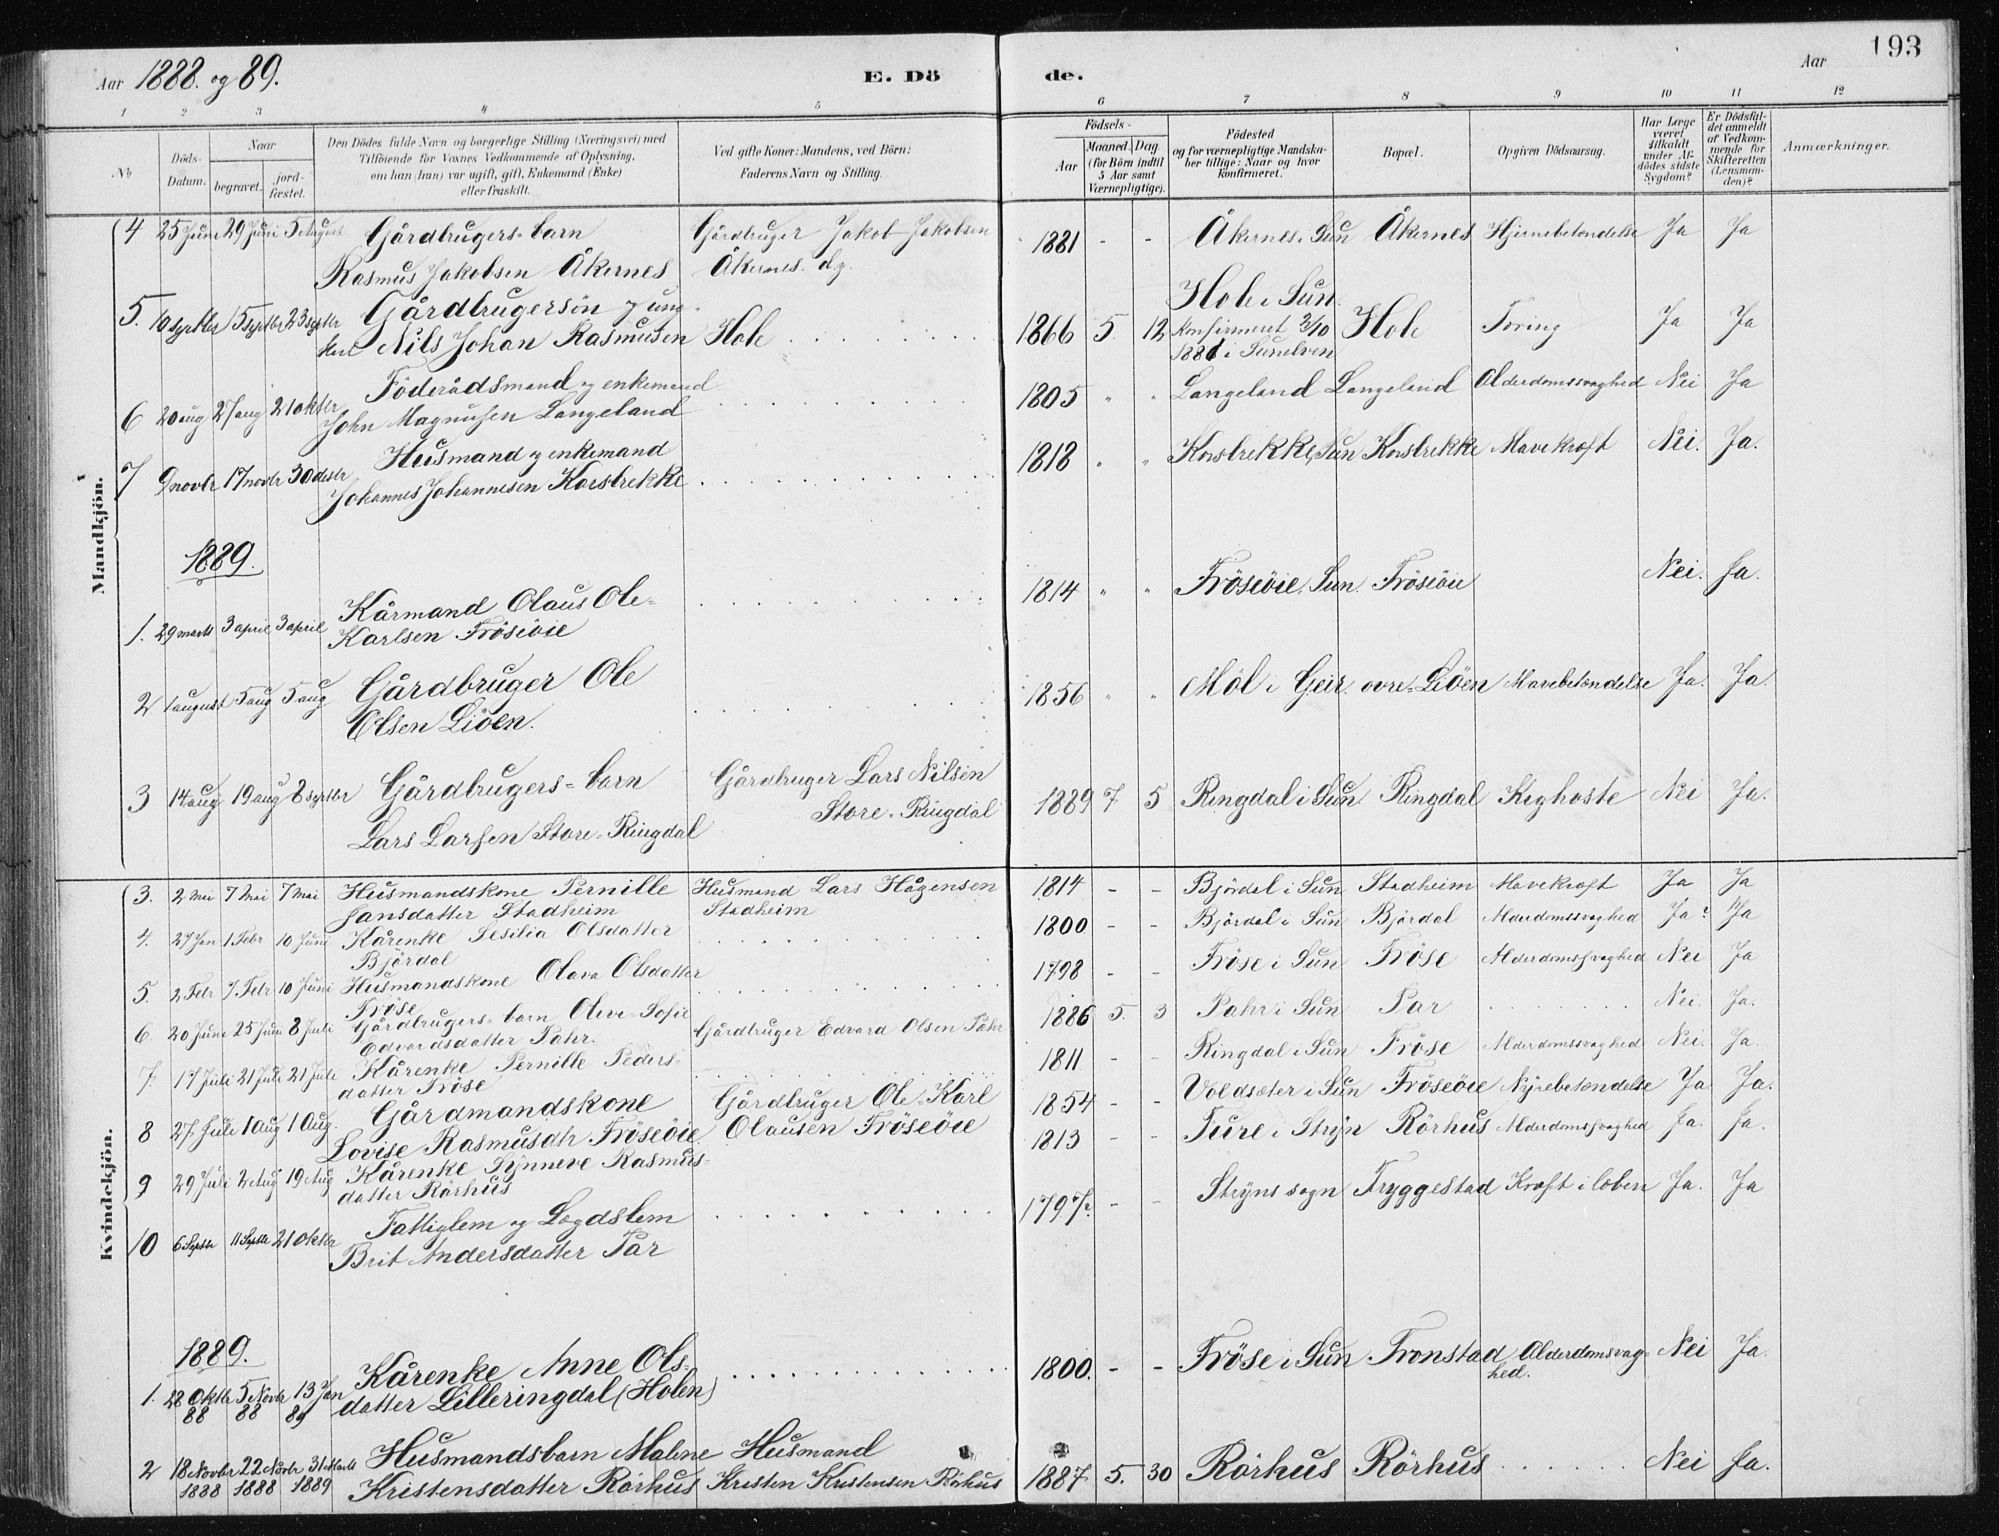 Aar 1888. og 89.
E. Dö de.
Aar
193
1 2 3 4 5 6 7 8 9 10 11 12
No
Döds-Datum.
Naar
begravet.
jord-fæstet.
Den Dödes fulde Navn og borgerlige Stilling (Næringsvei) med
Tilföiende for Voxnes Vedkommende af Oplysning,
om han (hun) var ugift, gift, Enkemand (Enke)
eller fraskilt.
Ved gifte Koner: Mandens, ved Börn:
Faderens Navn og Stilling.
Födsels-
Aar
Maaned. Dag.
(for Börn indtil
5 Aar samt
Værnepligtige).
Födested
og for værnepligtige Mandska-
ber tillige: Naar og hvor
konfirmeret.
Bopæl.
Opgiven Dödsaarsag.
Har Læge
været
tilkaldt
under Af-
dödes sidste
Sygdom?
Er Dödsfal-
det anmeldt
af Vedkom-
mende for
Skifteretten
(Lensman-
den)?
Anmærkninger.
Mandkjön.
4 25 Juni 29 Juni 5 August Gårdbrugers-barn Gårdbruger Jakob Jakobsen 1881 - - Åkernes i Sun Åkernes Hjernebetendelse Ja Ja
Rasmus Jakobsen Åkernes Åkernes.
5. 10 septbr 15 septbr 23 septbr Gårdbrugersön og ung- Hole i Sun.
karl Nils Johan Rasmusen Hole 1866 5 12 Konfirmeret 2/10 Hole Tæring Ja Ja
1881 i Sunelven
6 20 aug 27 aug 21 oktbr Föderådsmand og enkemand 1805 " " Langeland Langeland Alderdomssvaghed Nei Ja
John Magnusen Langeland
7 9 novbr 17 novbr 30 desbr Husmand og enkemand 1818 " " Korsbrekke, Sun Korsbrekke Mavekræft Nei. Ja.
Johannes Johannesen Korsbrekke
1889.
1. 29 marts 3 april 3 april Kårmand Olaus Ole- 1814 " " Fröseöie. Sun. Fröseöie Nei. Ja.
Karlsen Fröseöie
2 1 august 5 aug 5 aug Gårdbruger Ole 1856 " " Möl i Geir. ovre-Liöen Mavebetendelse Ja. Ja.
Olsen Liöen.
3 14 aug 19 aug 8 septbr Gårdbrugers-barn Gårdbruger Lars Nilsen 1889 7 5 Ringdal i Sun. Ringdal Kighoste Nei Ja.
Lars Larsen Store-Ringdal Store-Ringdal
Kvindekjön.
3. 2 Mei 7 Mai 7 Mai Husmandskone Pernille Husmand Lars Hågensen 1814 - - Björdal i Sun Stadheim Mavekræft Ja Ja
Jansdatter Stadheim Stadheim
4. 27 Jan 1 Febr 10 Juni Kårenke Sesilia Olsdatter 1800 - - Björdal i Sun Björdal Alderdomssvaghed Ja? Ja
Björdal
5. 2 Febr 7. Febr 10 Juni Husmandskone Olava Olsdatter 1798 - - Fröse i Sun Fröse Alderdomssvaghed Nei Ja
Fröse
6. 20 Juni 25 Juni 8 Juli Gårdbrugers-barn Oleve-Sofie Gårdbruger Edvard Olsen Pahr 1886 5. 3 Pahr i Sun Par Nei. Ja.
Edvardsdatter Pahr.
7. 17 Juli 21 Juli 21 Juli Kårenke Pernille Peders- 1811 - - Ringdal i Sun Fröse Alderdomssvaghed Nei. Ja.
datter Fröse
8 27. Juli 1 Aug 1 Aug. Gårdmandskone Gårdbruger Ole-Karl 1854 - - Voldsæter i Sun Fröseöie Nyrebetendelse Ja Ja.
Lovise Rasmusdtr Fröseöie Olausen Fröseöie
9 29 Juli 2 Aug 19 Aug Kårenke Synneve Rasmus- 1813 - - Fure i Stryn Rörhus Alderdomssvaghed Ja. Ja.
datter Rörhus
10 6 Septbr 11 Septbr 21 oktbr Fattiglem og Lægdslem 1797? - - Stryns sogn Tryggestad Kræft i læben Ja. Ja
Brit Andersdatter Par
1889.
1. 28 Oktbr 5 Novbr 13 Jan Kårenke Anne Ols- 1800. - - Fröse i Sun Tronstad Alderdomsvag- Nei Ja.
88 88 89 datter Lilleringdal (Holen) hed.
2 18 Novbr 22 Novbr 31 Marts Husmandsbarn Malene Husmand
1888 1888 1889 Kristensdatter Rörhus Kristen Kristensen Rörhus 1887 5. 30 Rörhus Rörhus Nei Ja.